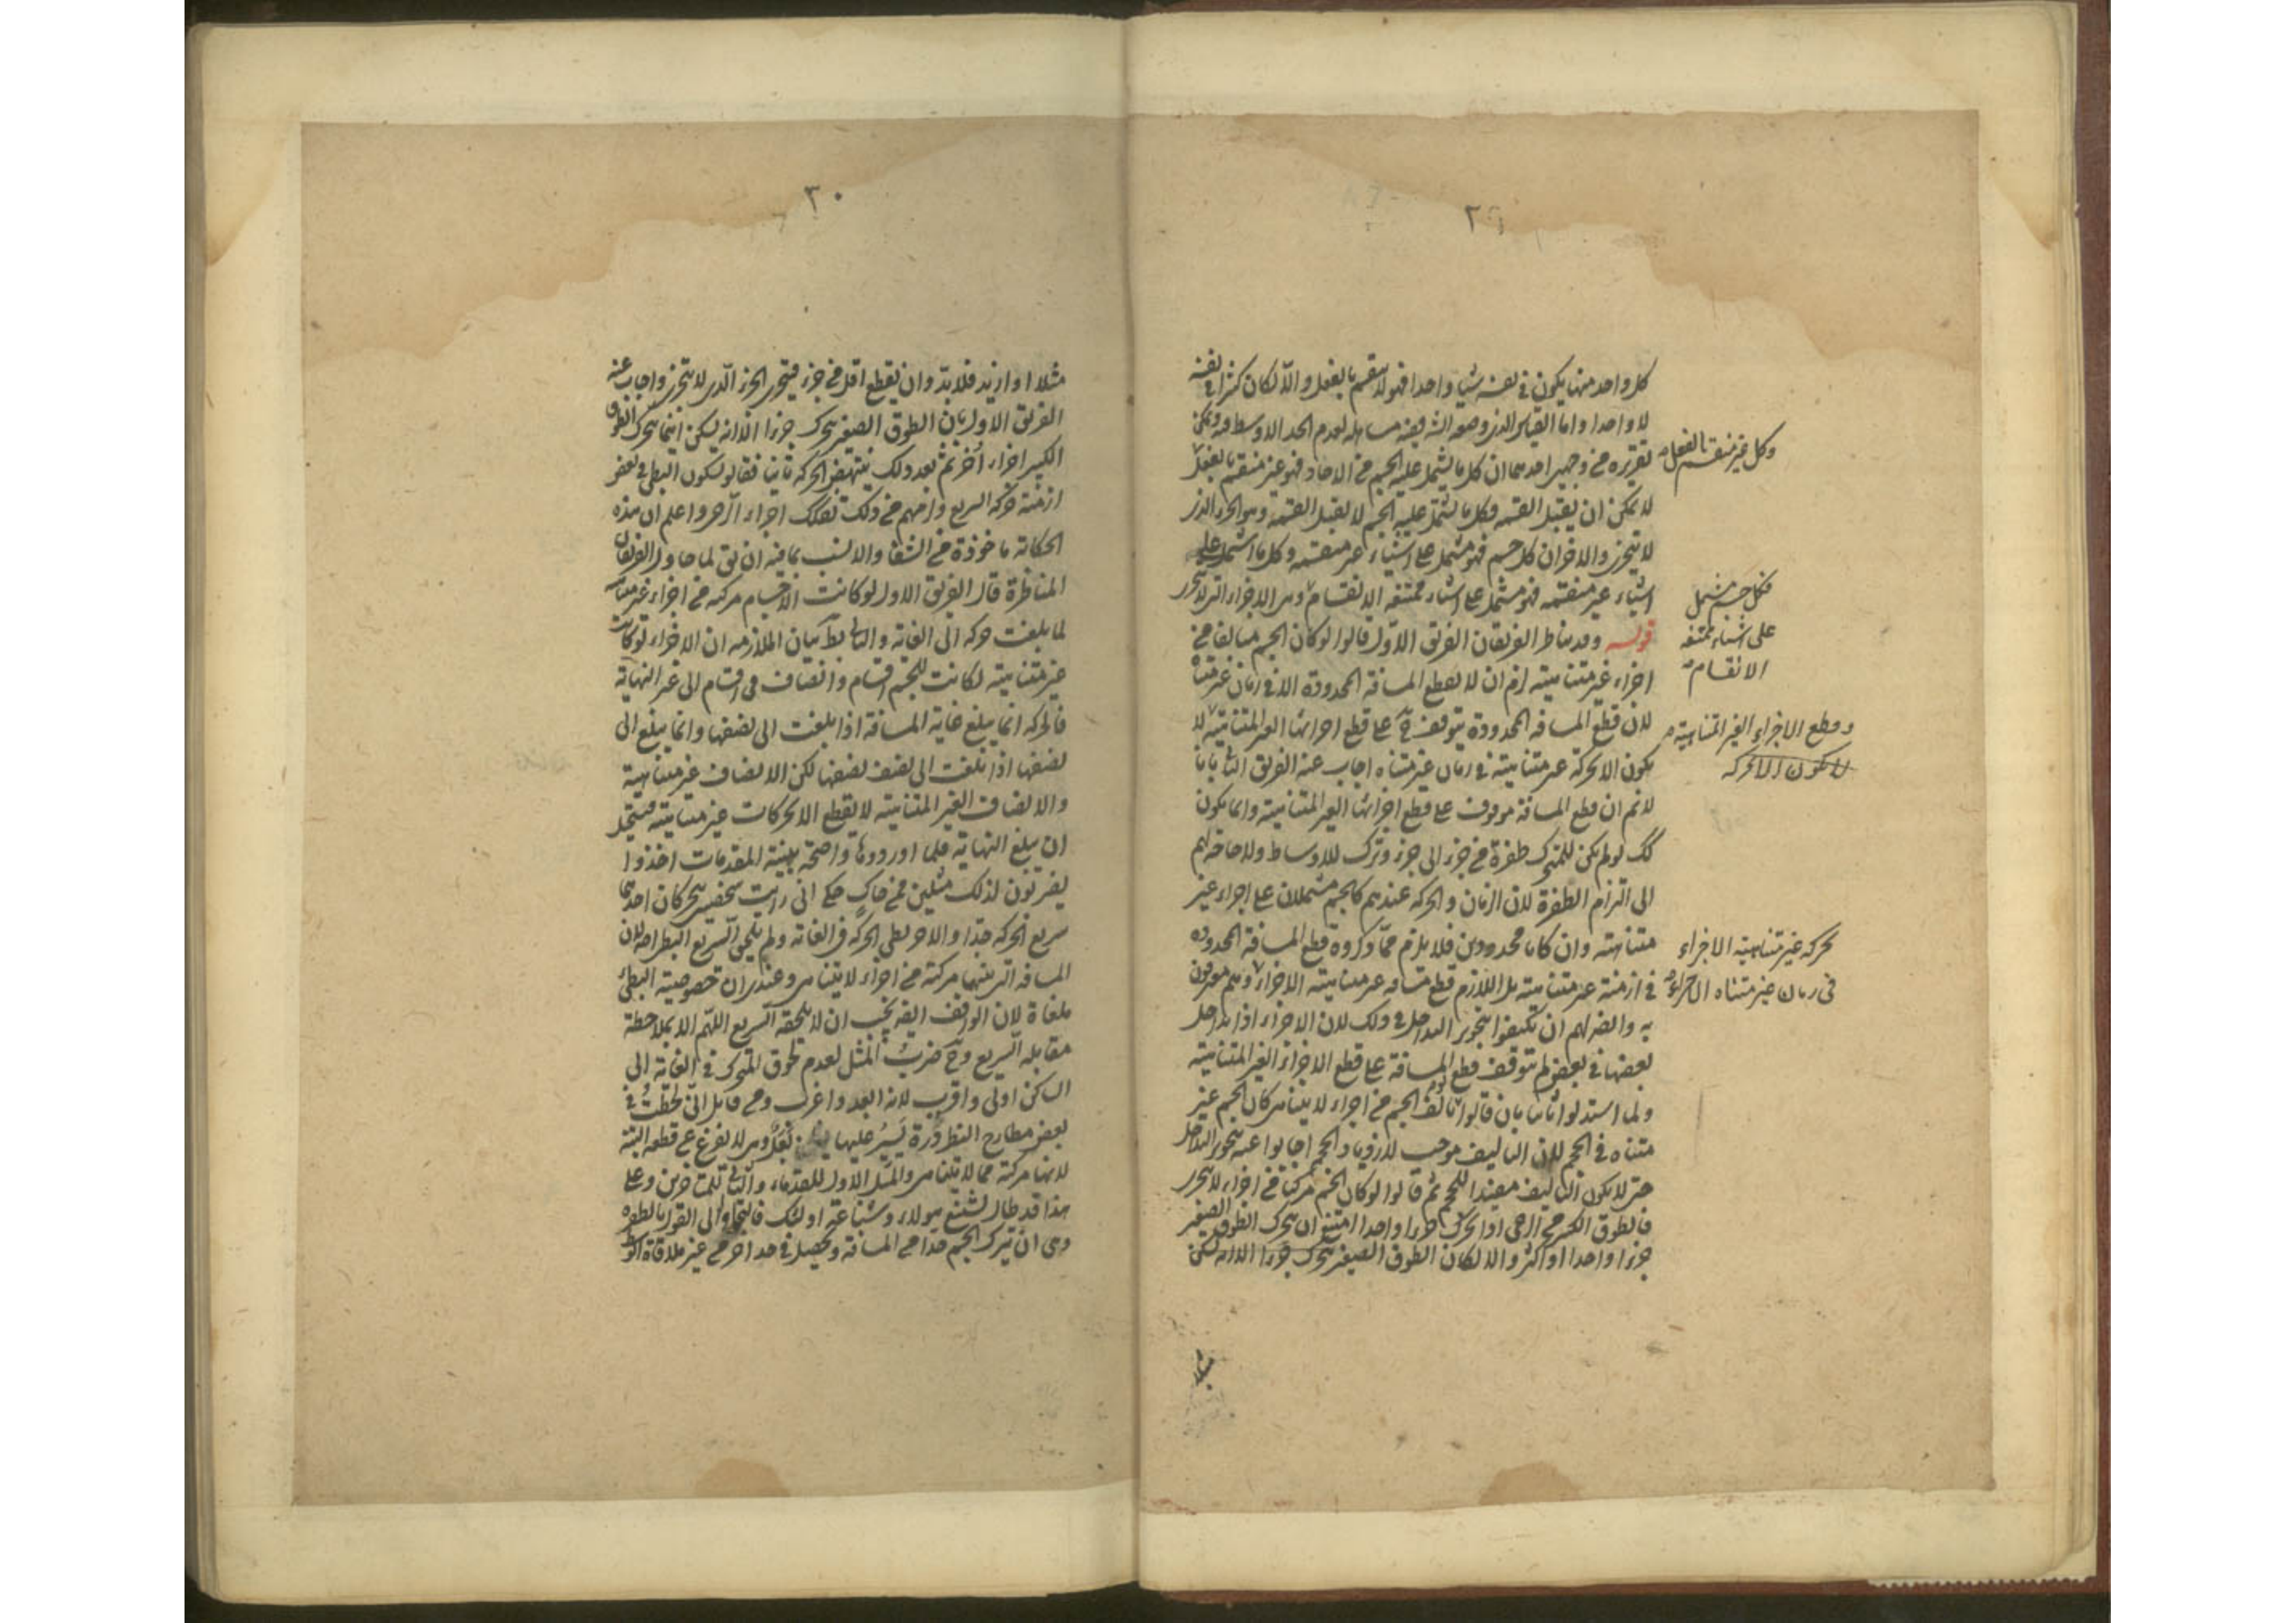 ٢٩
كل واحد منها يكون فى نفسه شيئا واحدا فهو لا ينقسم بالفعل والا لكان كثيرا فى نفسه
لا واحدا واما القياس الذى وضعه الشيخ ففيه مساهلة لعدم الحد الاوسط فيه ويمكن
تقريره من وجهين احدهما ان كل ما يشتمل عليه الجسم من الاحاد فهو غير منقسم بالفعل
وكل غير منقسم بالفعل
لا يمكن ان يقبل القسمة فكل ما يشتمل عليه الجسم لا يقبل القسمة وهو الجزء الذى
لا يتجزى والاخر ان كل جسم فهو مشتمل على اشياء غير منقسمة وكل ما اشتمل على
اشياء غير منقسمة فهو مشتمل على اشياء ممتنعة الانقسام وهى الاجزاء التى لا تتجزى
فكل جسم مشتمل
على اشياء ممتنعة
الانقسام
قوله وقد يناظر الفريقان الفريق الاول قالوا لو كان الجسم متالفا من
اجزاء غير متناهية لزم ان لا يقطع المسافة المحدودة الا فى زمان غير متناه
لان قطع المسافة المحدودة يتوقف على قطع اجزائها الغير المتناهية لا
وقطع الاجزاء الغير المتناهية
لا يكون الا بحركة
يكون الا بحركة غير متناهية فى زمان غير متناه اجاب عنه الفريق الثانى بانا
لا نم ان قطع المسافة موقوف على قطع اجزائها الغير المتناهية وانما يكون
كك لو لم يكن للمتحرك طفرة من جزء الى جزء وترك للاوساط ولا حاجة لهم
الى التزام الطفرة لان الزمان والحركة عندهم كالجسم مشتملان على اجزاء غير
متناهية وان كانا محدودين فلا يلزم مما ذكروه قطع المسافة المحدودة
بحركة غير متناهية الاجزاء
فى زمان غير متناه الاجزاء
فى ازمنة غير متناهية بل اللازم قطع مسافة غير متناهية الاجزاء وهم معترفون
به وايضا لهم ان يكتفوا بتجويز التداخل فى ذلك لان الاجزاء اذا تداخل
بعضها فى بعض لم يتوقف قطع المسافة على قطع الاجزاء الغير المتناهية
ولما استدلوا ثانيا بان قالوا لو تالف الجسم من اجزاء لا يتناهى كان الجسم غير
متناه فى الحجم لان التاليف موجب لازدياد الحجم اجابوا عنه بتجويز التداخل
حتى لا يكون التاليف مفيدا للحجم ثم قالوا لو كان الجسم مركبا من اجزاء لا تتجزى
فالطوق الكبير من الرحى اذا تحرك جزءا واحدا امتنع ان يتحرك الطوق الصغير
جزءا واحدا او اكثر والا لكان الطوق الصغير يتحرك جزءا الا انه يسكن
٣٠
مثلا او ازيد فلا بد وان يقطع اقل من جزء فيتجزى الجزء الذى لا يتجزى واجاب عنه
الفريق الاول بان الطوق الصغير يتحرك جزءا الا انه يسكن اينما يتحرك الطوق
الكبير اجزاء اخر ثم بعد ذلك ينتهض الحركة ثانيا فقالوا بسكون البطى فى بعض
ازمنة حركة السريع ولزمهم من ذلك تفكك اجزاء الرحى واعلم ان هذه
الحكاية ماخوذة من الشفا والانسب بما فيه ان يق لما حاول الفريقان
المناظرة قال الفريق الاول لو كانت الاجسام مركبة من اجزاء غير متناهية
لما بلغت حركة الى الغاية والتالى بط بيان الملازمة ان الاجزاء لو كانت
غير متناهية لكانت للجسم اقسام وانصاف فى اقسام الى غير النهاية
فالحركة انما يبلغ غاية المسافة اذا بلغت الى نصفها وانما يبلغ الى
نصفها اذا بلغت الى نصف نصفها لكن الانصاف غير متناهية
والانصاف الغير المتناهية لا يقطع الا بحركات غير متناهية فيستحيل
ان يبلغ النهاية فلما اوردوها واضحة بينة المقدمات اخذوا
يضربون لذلك مثلين فمن حاك حكى انى رايت شخصين يتحركان احدهما
سريع الحركة جدا والاخر بطى الحركة فى الغاية ولم يلحق السريع البطى اصلا لان
المسافة التى بينهما مركبة من اجزاء لا يتناهى وعندى ان خصوصية البطى
ملغاة لان الواقف ايضا يجب ان لا يلحقه السريع اللهم الا بملاحظة
مقابلة السريع وح ضرب المثل لعدم لحوق المتحرك فى الغاية الى
الساكن اولى واقرب لانه ابعد واغرب ومن قايل انى لحظت فى
بعض مطارح النظر ذرة يسير عليها نعل وهى لا يفرغ عن قطعه البتة
لانها مركبة مما لا يتناهى والمثل الاول للقدماء والثانى للمتاخرين وعلى
هذا قد طال تشنيع هولاء وشناعة اولئك فالتجاوا الى القول بالطفرة
وهى ان يترك الجسم حدا من المسافة ويحصل فى حد اخر من غير ملاقاة الوسط